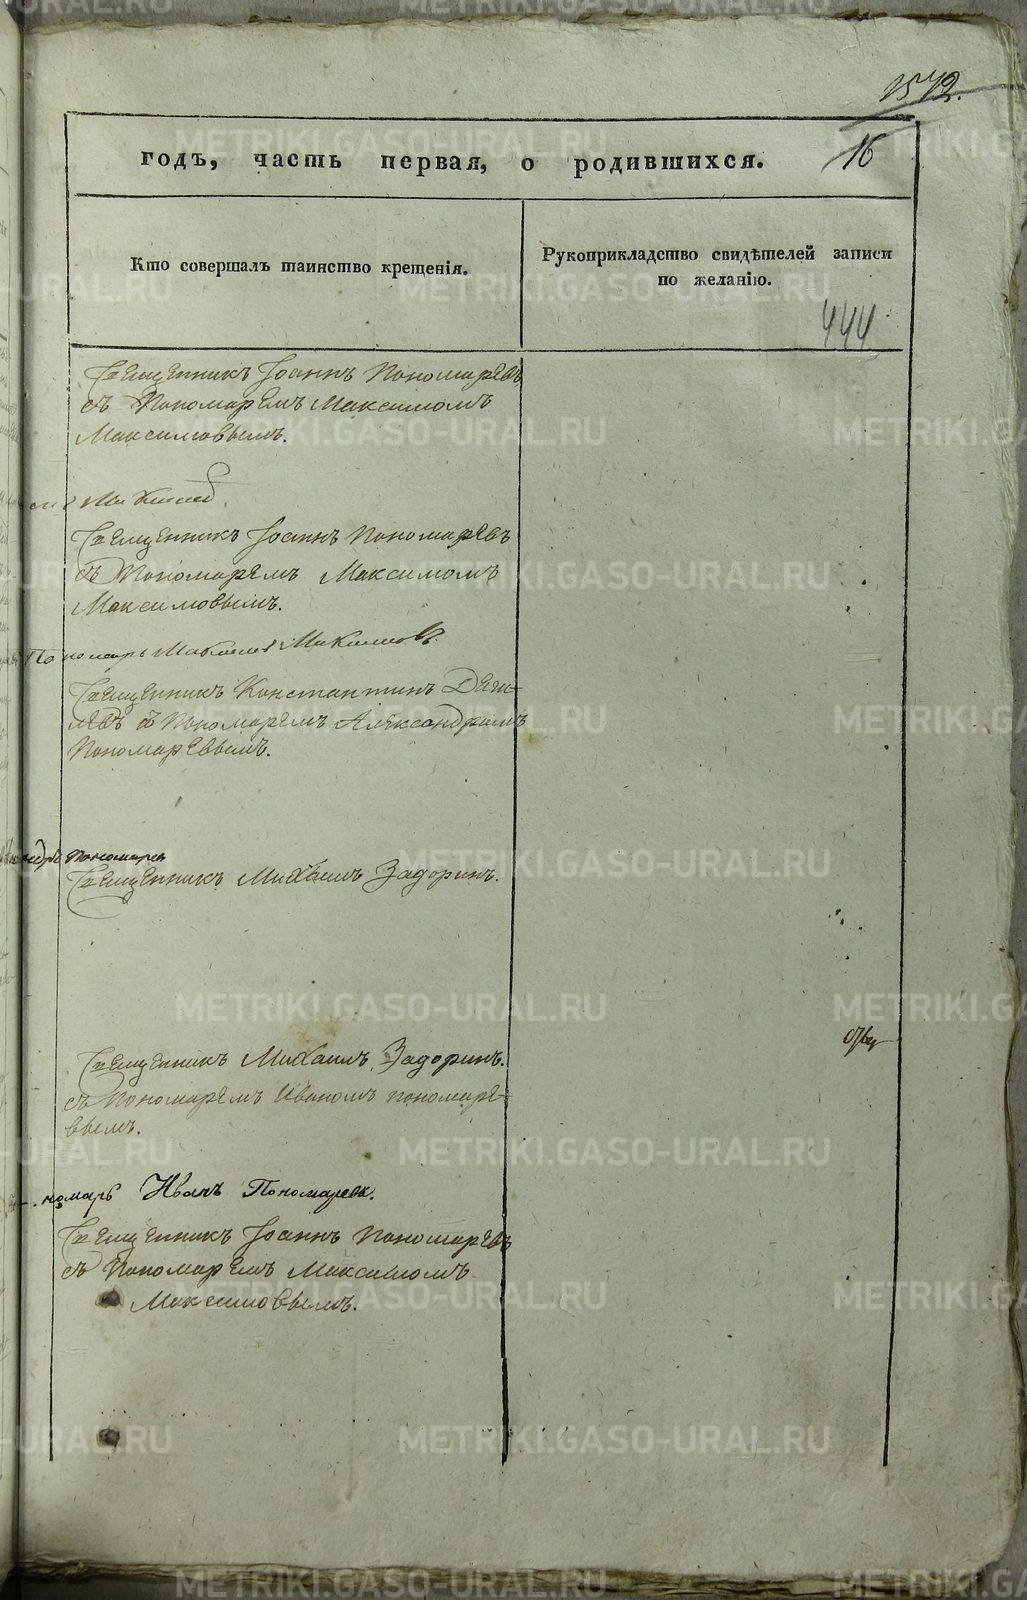 1542.
годъ, часть первая, о родившихся. 16
Кто совершалъ таинство крещенія.
Рукоприкладство свидѣтелей записи
по желанію.
444
Священникъ Іоаннъ Пономаревъ
съ Пономаремъ Максимомъ
Максимовымъ.
Священникъ Іоаннъ Пономаревъ
съ Пономаремъ Максимомъ
Максимовымъ.
Пономарь Максимъ Максимовъ.
Священникъ Константинъ Деги-
левъ съ Пономаремъ Александромъ
Пономаревымъ.
Пономарев
Священникъ Михаилъ Задоринъ.
Священникъ Михаилъ Задоринъ.
съ Пономаремъ Иваномъ Пономаре-
вымъ.
номарь Иванъ Пономаревъ.
Священникъ Іоаннъ Пономаревъ
съ Пономаремъ Максимомъ
Максимовымъ.
METRIKI.GASO-URAL.RU